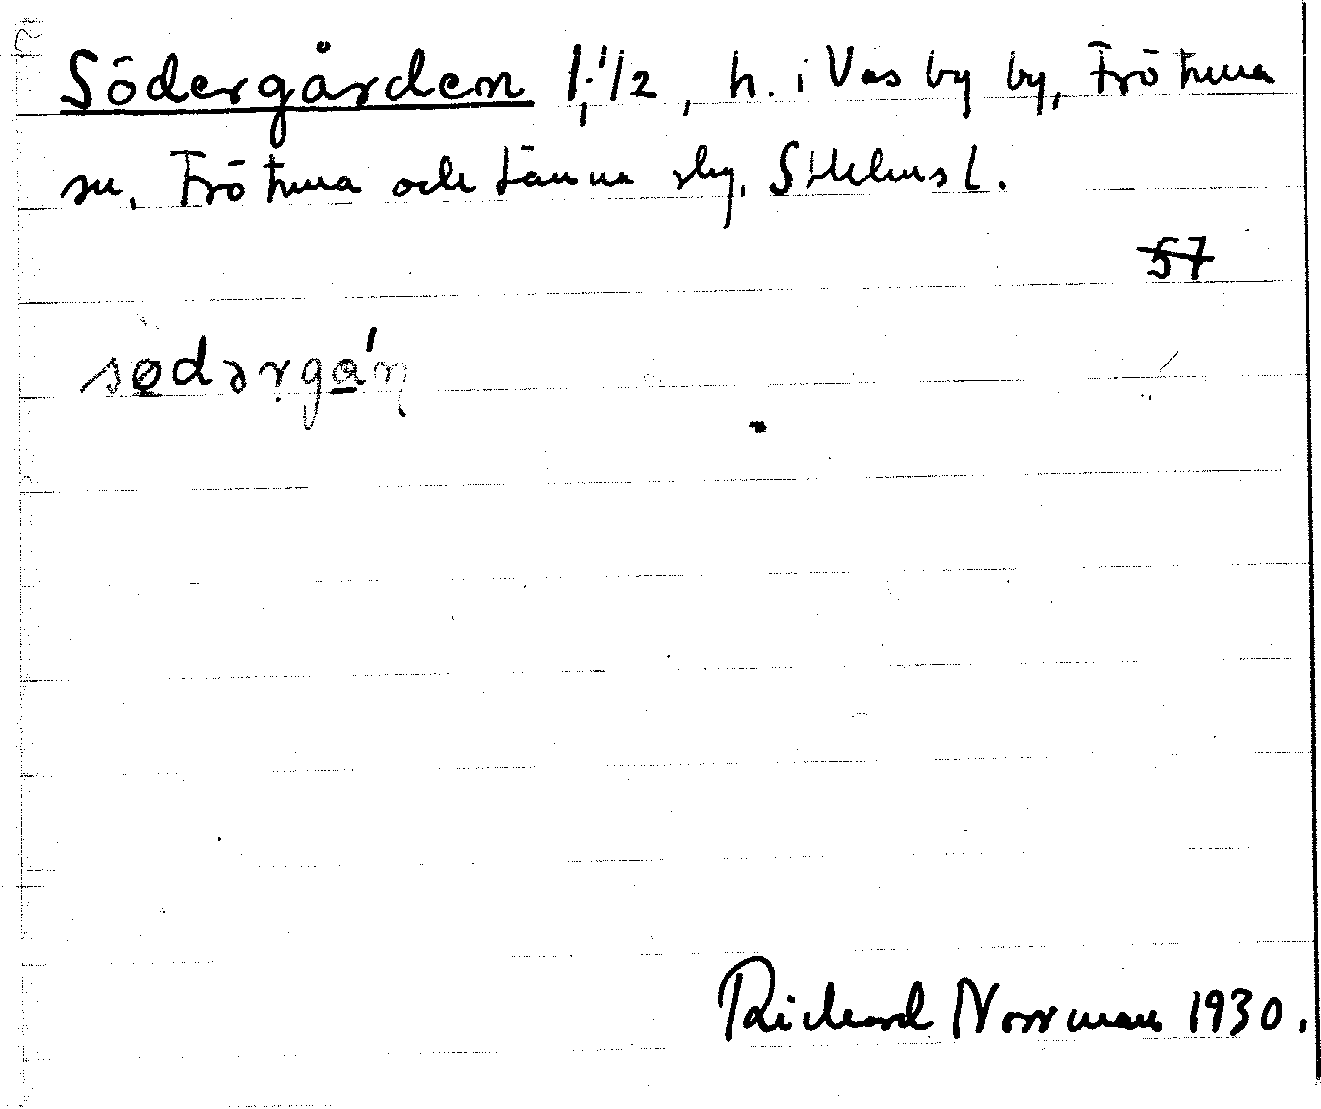 Södergården 1, 1/2, h. i Väsby by, Frötuna
sn, Frötuna och Länna skg, Sthlms l.
57
södərgá'ɳ
Richard Norrman 1930.